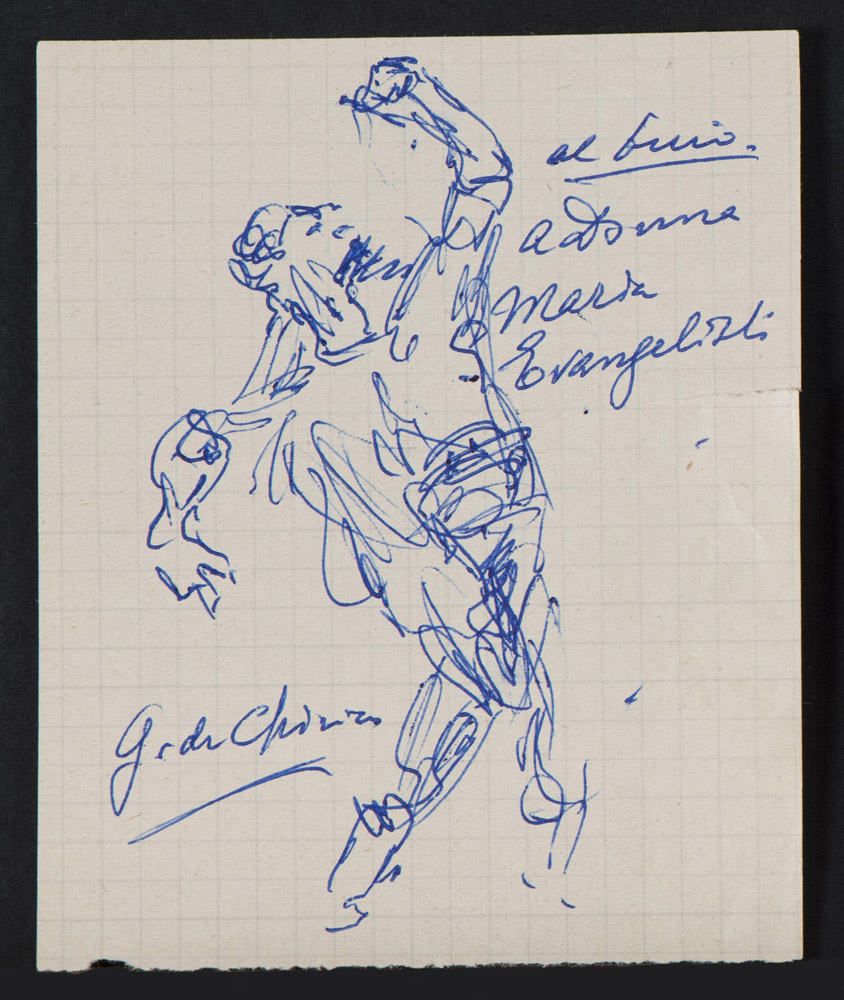 al buio.
a donna
Maria
Evangelisti
G. de Chirico